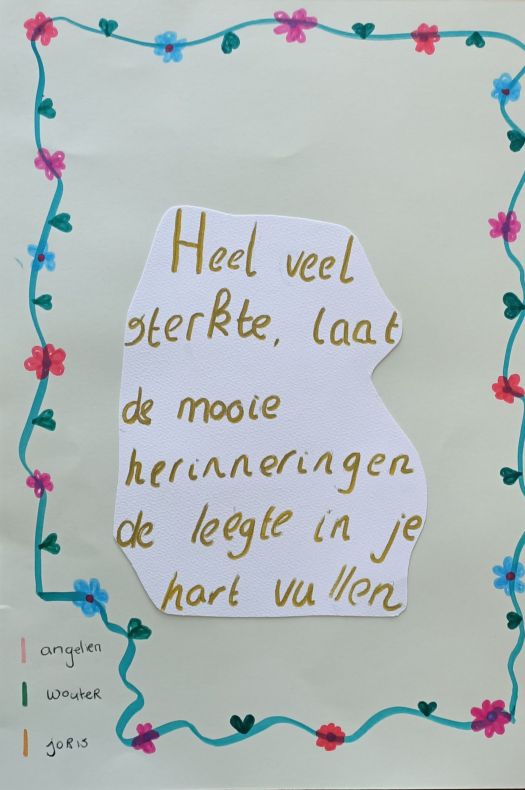 Heel veel
sterkte, laat
de mooie
herinneringen
de leegte in je
hart vullen
angelien
wouter
joris